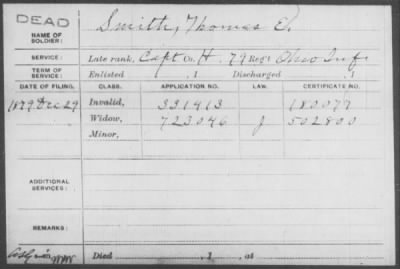 DEAD
NAME OF SOLDIER: Smith, Thomas E.
SERVICE: Late rank, Capt Co. H. 79 Reg't Ohio Inf.
TERM OF SERVICE: Enlisted , 1 Discharged , 1
DATE OF FILING. CLASS. APPLICATION NO. LAW. CERTIFICATE NO.
1879 Dec 29 Invalid, 331413 180077
Widow, 723046 J 502800
Minor,
ADDITIONAL SERVICES:
REMARKS:
Died , 1 , at